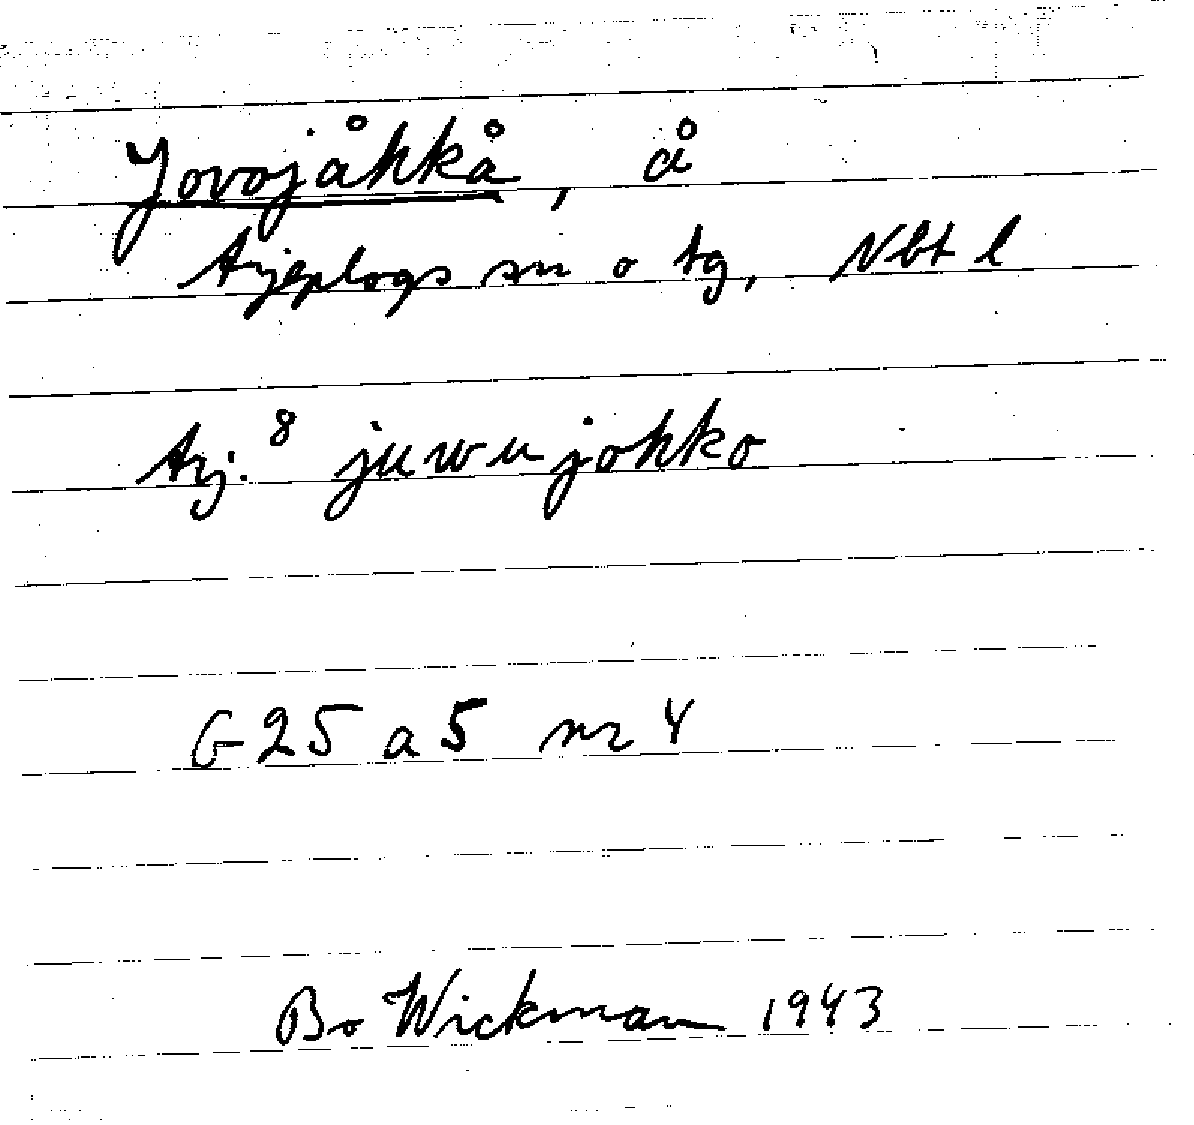 Jovojåhkå, å
Arjeplogs sn o tg, Nbt l
Arj.⁸ juwujohko
G25 a5 nr 4
Bo Wickman 1943